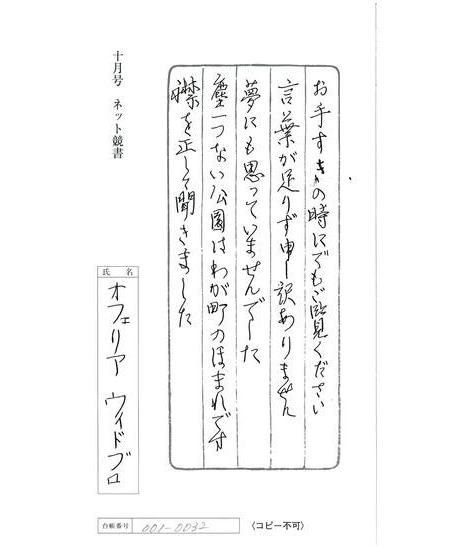 お手すきの時にでもご監見ください
言葉が足りず申し訳ありません
夢にも思っていませんでした
塵一つない公園はわが町のほまれです
襟を正して聞きました
十月号 ネット競書
氏名
オフェリア ウィドブロ
台帳番号 001-0032
〈コピー不可〉